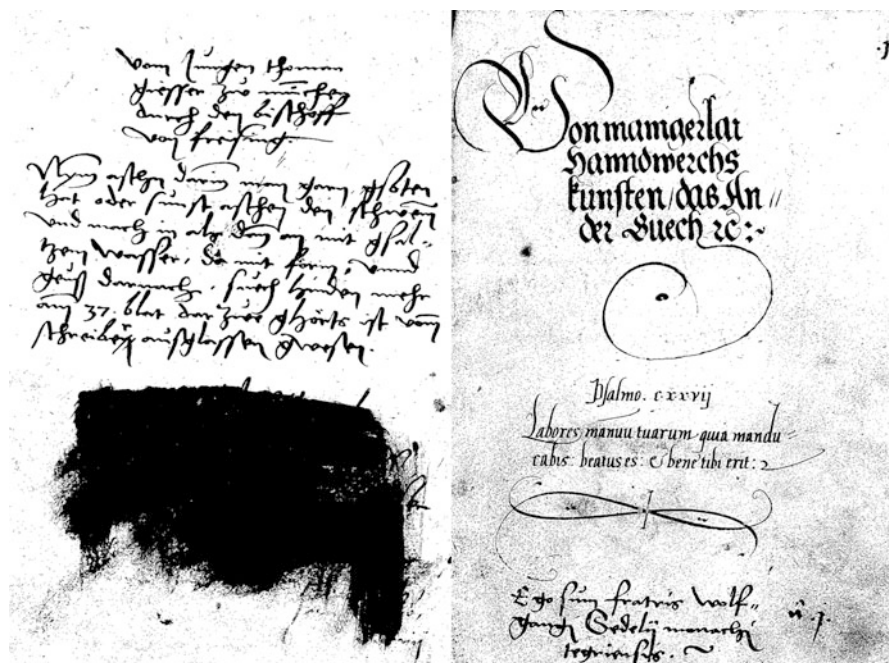 vom Jungen thoman
giesser zw münchen
durch den bischoff
von freising.
Nym aschn darin man garn gsotten
hat oder sunst aschen den schwem
und mach in ab dan an mit gsal-
tzem wasser, da mit form, und
geus darnach. such hinden mehr
am 37. blat dar zue ghörts ist vom
schreiben ausglassen gwesen.
.j.
Von mamgerlai
Hanndwerchs
kunsten / das An //
der Buech ꝛc :~
Psalmo . c.xxvij
Labores manuu tuarum quia mandu =
cabis : beatus es : & bene tibi erit :
Ego sum fratris Wolf=
gangi Sedelij monachi
tegriensis . ~
n . j .